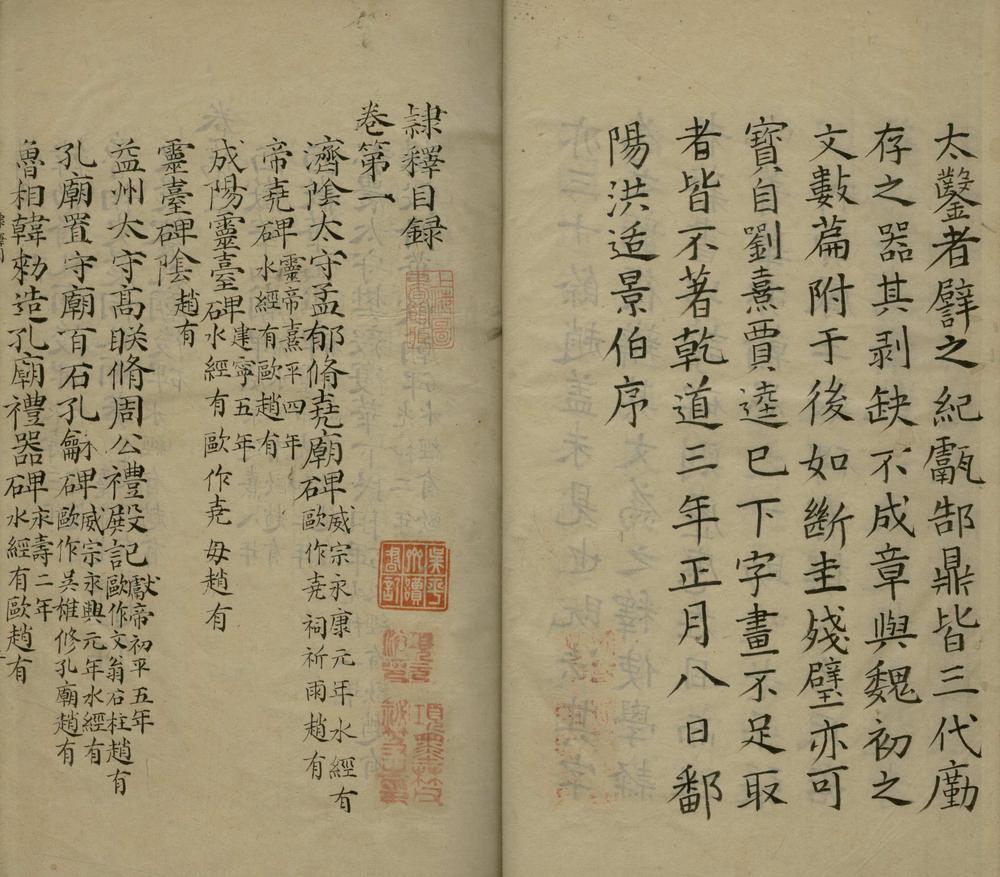 太鑿者譬之紀甗郜鼎皆三代勵
存之器其剥缺不成章與魏初之
文數萹附于後如斷圭殘璧亦可
寶自劉熹賈逵已下字畫不足取
者皆不著乾道三年正月八日鄱
陽洪适景伯序
隸釋目録
卷第一
濟陰太守孟郁脩堯廟碑威宗永康元年水經有歐作堯祠祈雨趙有
帝堯碑靈帝熹平四年水經有歐趙有
成陽靈臺碑建寧五年水經有歐作堯毋趙有
靈臺碑陰趙有
益州太守高眹脩周公禮殿記獻帝初平五年歐作文翁石柱趙有
孔廟置守廟百石孔龢碑威宗永興元年水經有歐作吳雄修孔廟趙有
魯相韓勑造孔廟禮器碑永壽二年水經有歐趙有